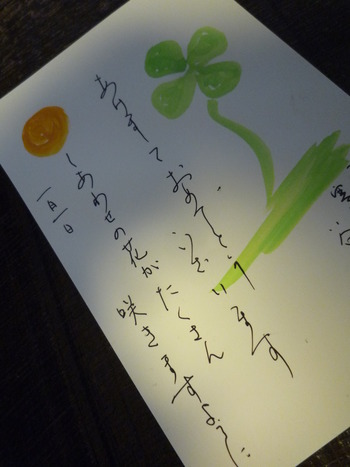 あけまして おめでとうございます
しあわせの花が たくさん
咲きますように
一月一日